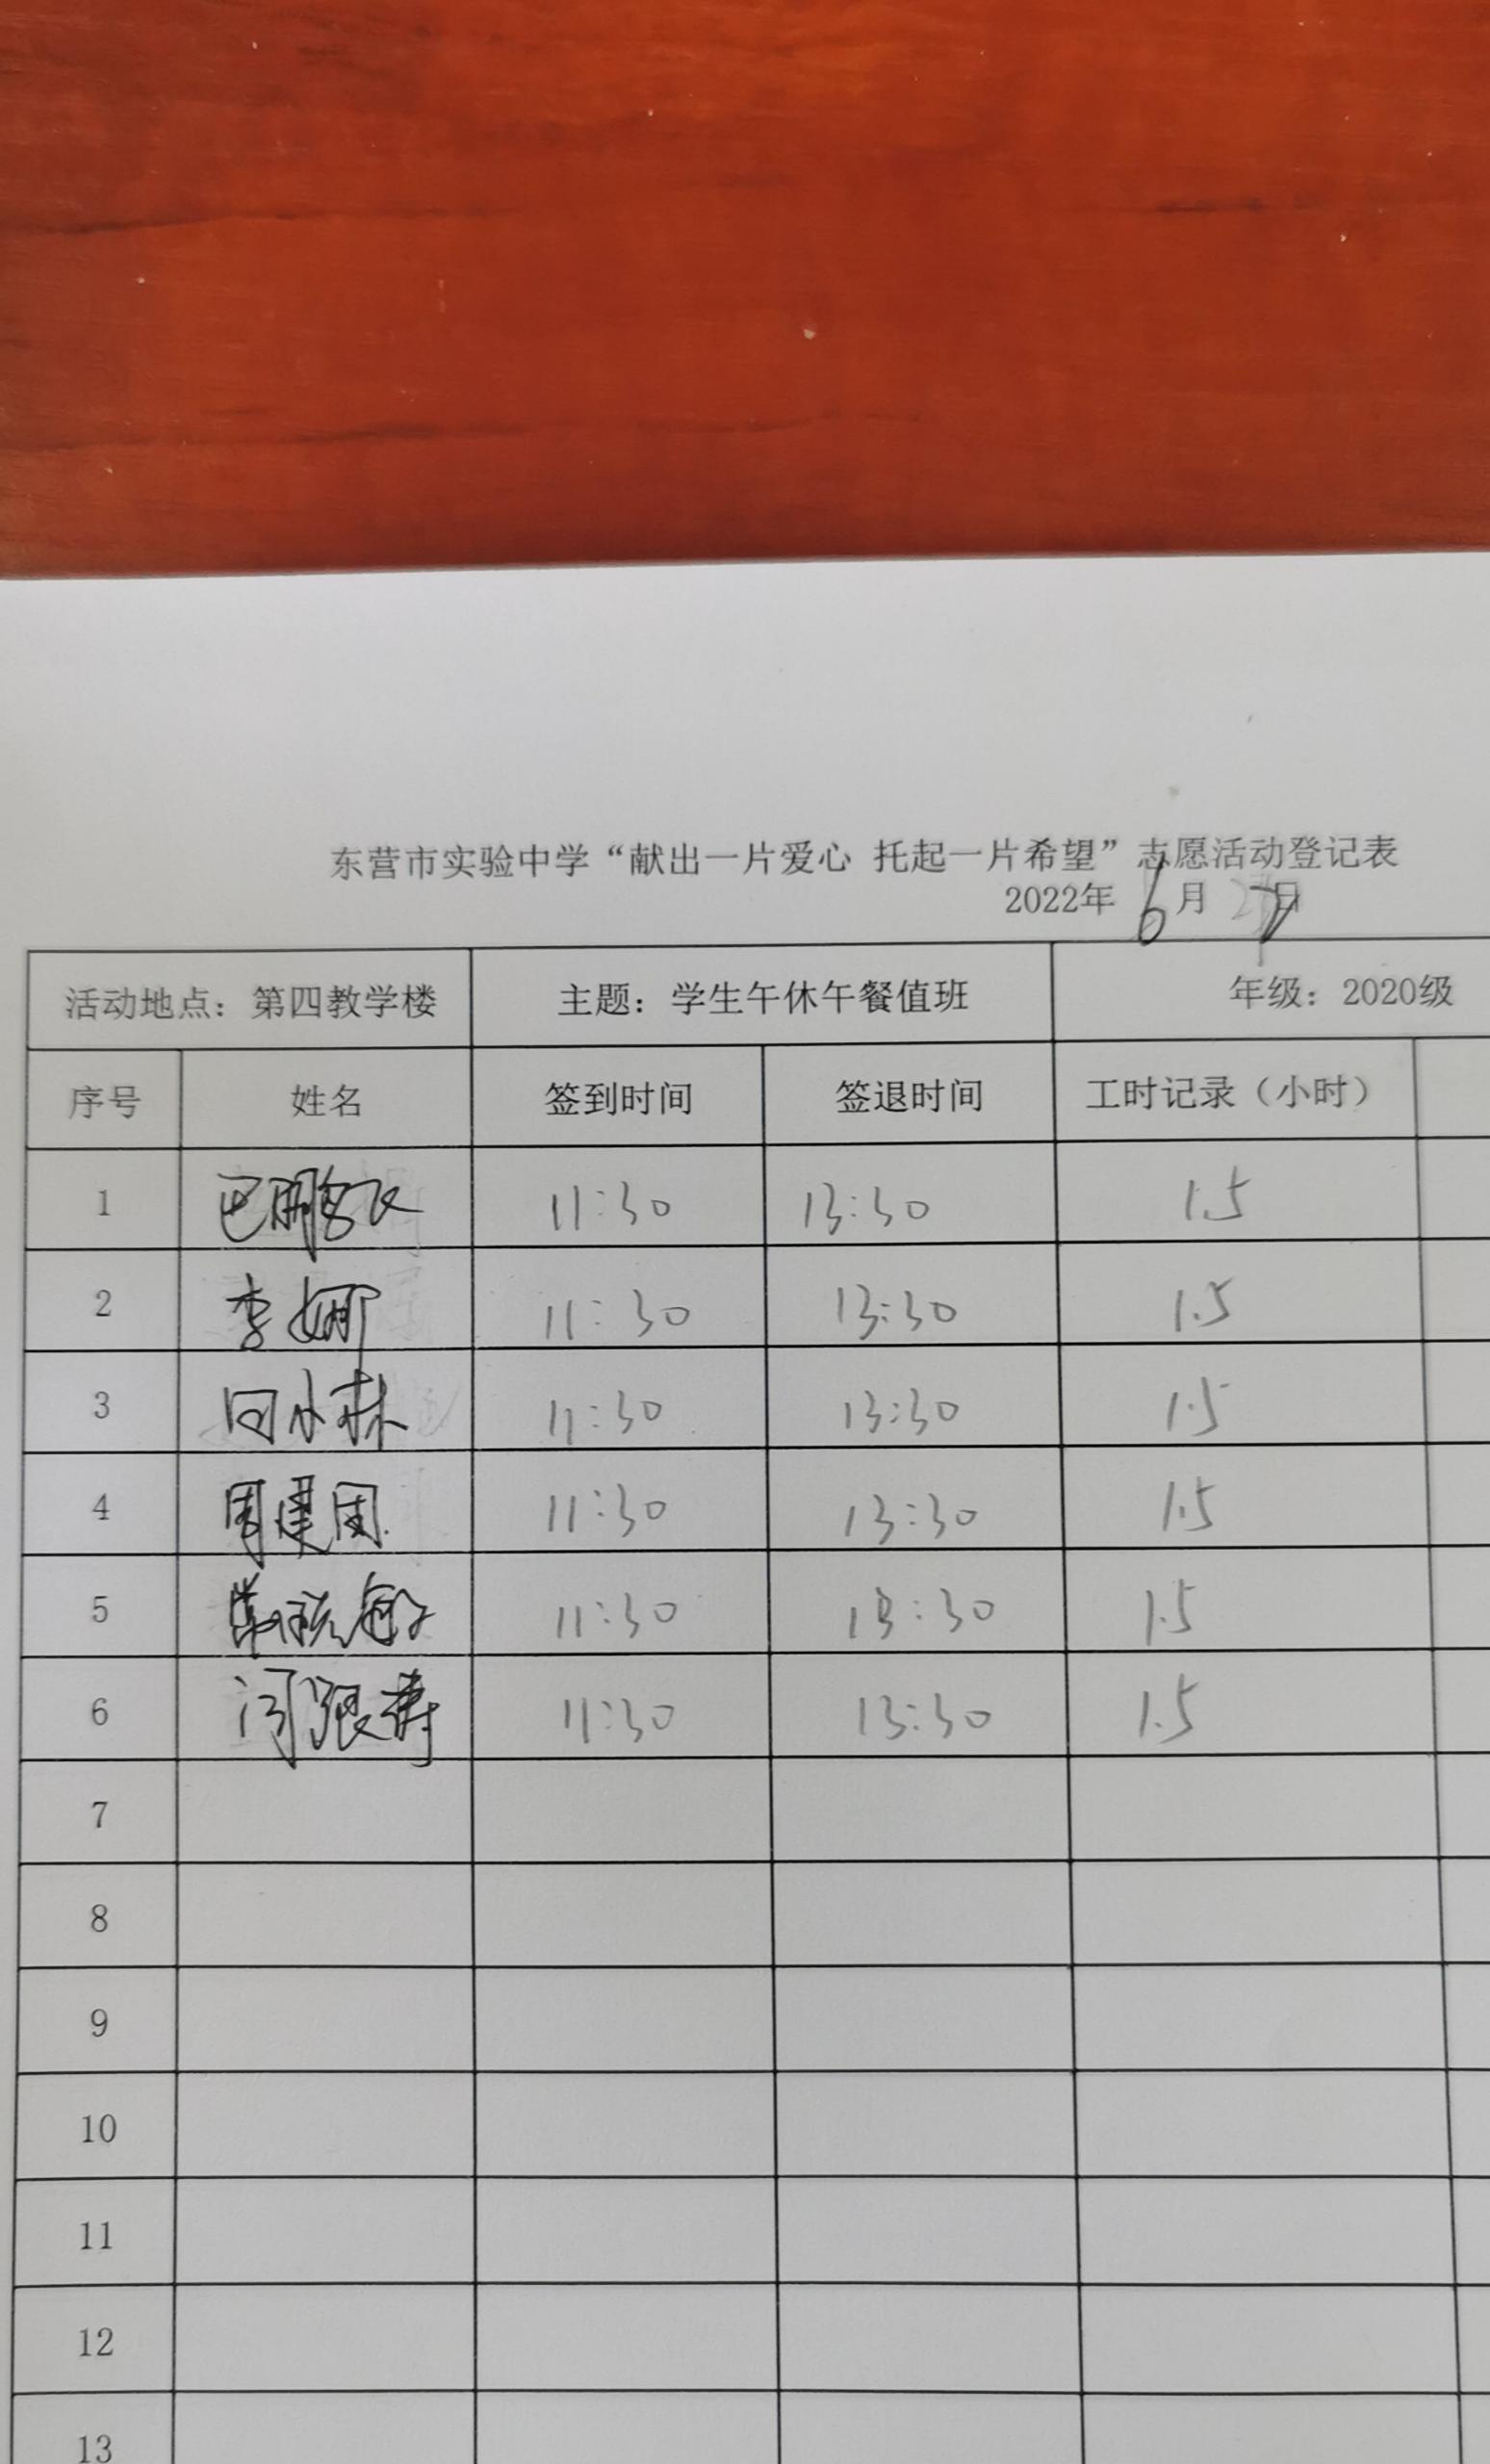 东营市实验中学“献出一片爱心 托起一片希望”志愿活动登记表
2022年 6月 日
活动地点：第四教学楼 主题：学生午休午餐值班 年级：2020级
序号 姓名 签到时间 签退时间 工时记录（小时）
1 巴鹏飞 11:30 13:30 1.5
2 李娜 11:30 13:30 1.5
3 小林 11:30 13:30 1.5
4 周建国 11:30 13:30 1.5
5 敏 11:30 13:30 1.5
6 11:30 13:30 1.5
7
8
9
10
11
12
13